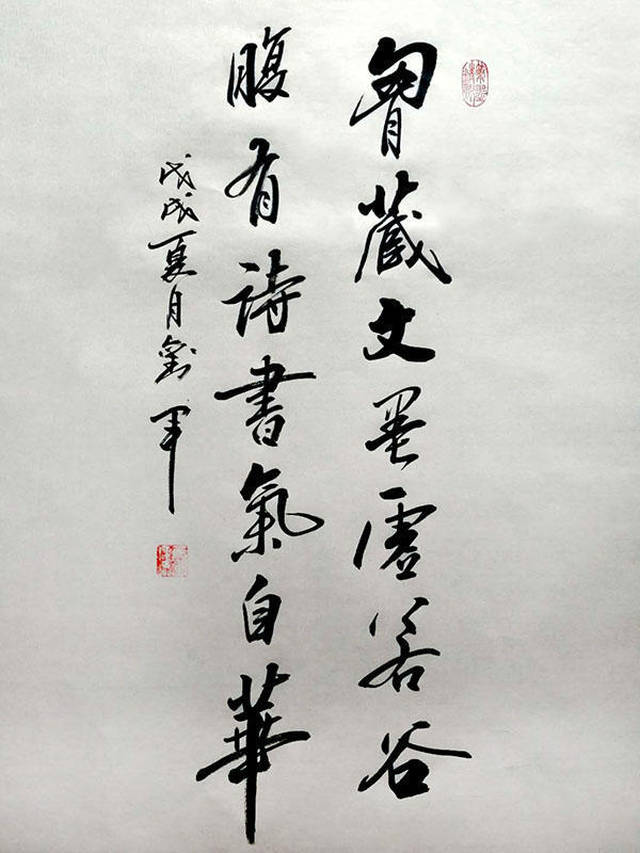 胷藏文墨虛若谷
腹有詩書氣自華
戊戌夏月劉軍